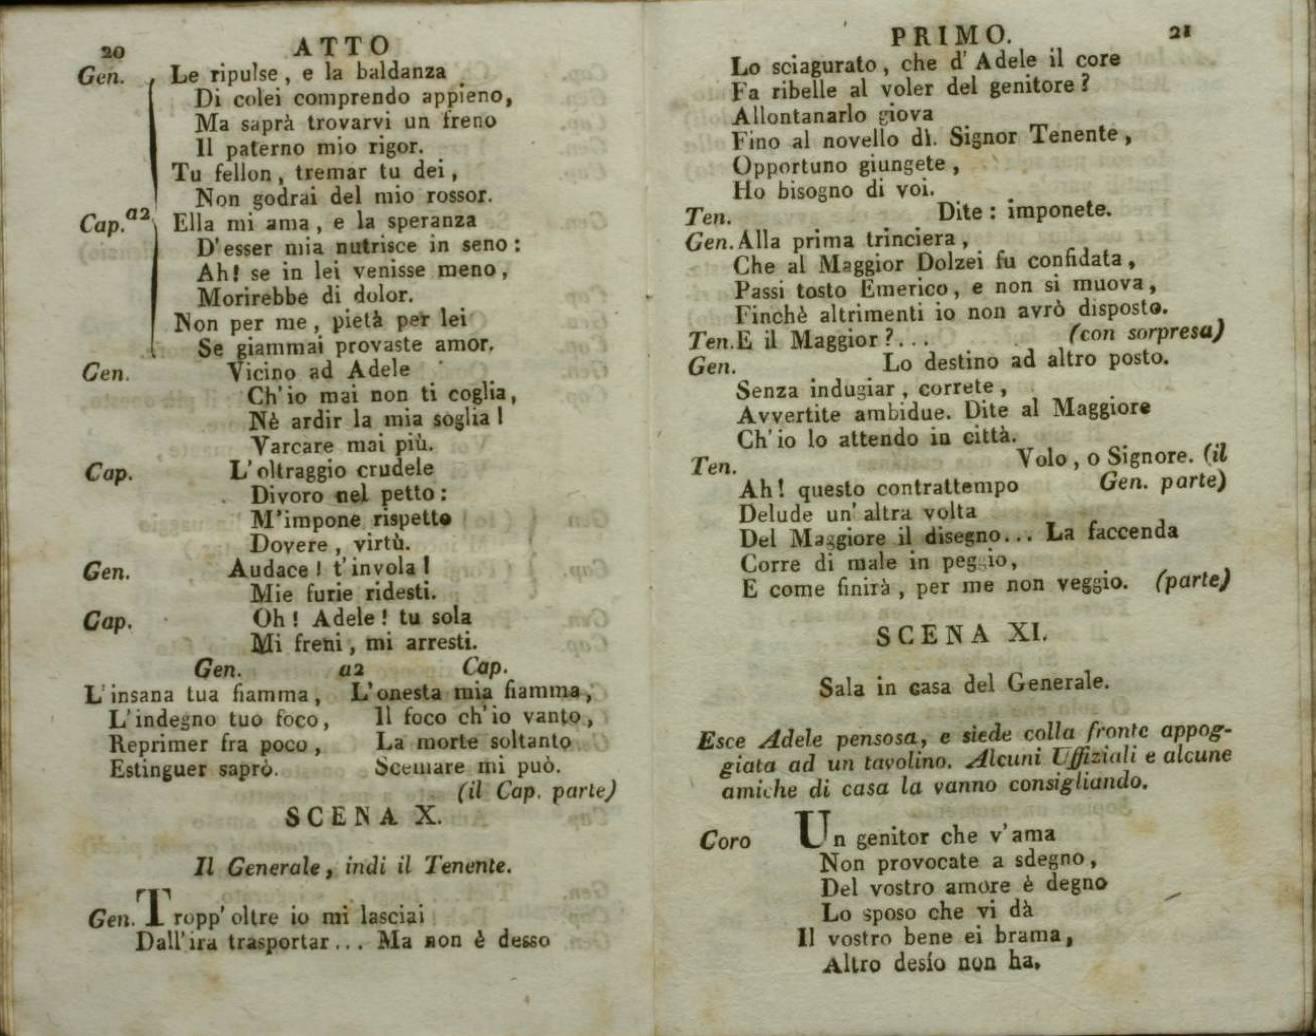 20 ATTO
Gen. Le ripulse, e la baldanza
Di colei comprendo appieno,
Ma saprà trovarvi un freno
Il paterno mio rigor.
Tu fellon, tremar tu dei,
Non godrai del mio rossor.
Cap. a2 Ella mi ama, e la speranza
D'esser mia nutrisce in seno:
Ah! se in lei venisse meno,
Morirebbe di dolor.
Non per me, pietà per lei
Se giammai provaste amor.
Gen. Vicino ad Adele
Ch'io mai non ti coglia,
Nè ardir la mia soglia!
Varcare mai più.
Cap. L'oltraggio crudele
Divoro nel petto:
M'impone rispetto
Dovere, virtù.
Gen. Audace! t'invola!
Mie furie ridesti.
Cap. Oh! Adele! tu sola
Mi freni, mi arresti.
Gen. a2 Cap.
L'insana tua fiamma, L'onesta mia fiamma,
L'indegno tuo foco, Il foco ch'io vanto,
Reprimer fra poco, La morte soltanto
Estinguer saprò. Scemare mi può.
(il Cap. parte)
SCENA X.
Il Generale, indi il Tenente.
Gen. Tropp' oltre io mi lasciai
Dall'ira trasportar... Ma non è desso
PRIMO. 21
Lo sciagurato, che d'Adele il core
Fa ribelle al voler del genitore?
Allontanarlo giova
Fino al novello dì. Signor Tenente,
Opportuno giungete,
Ho bisogno di voi.
Ten. Dite: imponete.
Gen. Alla prima trinciera,
Che al Maggior Dolzei fu confidata,
Passi tosto Emerico, e non si muova,
Finchè altrimenti io non avrò disposto.
Ten. E il Maggior?... (con sorpresa)
Gen. Lo destino ad altro posto.
Senza indugiar, correte,
Avvertite ambidue. Dite al Maggiore
Ch'io lo attendo in città.
Ten. Volo, o Signore. (il
Ah! questo contrattempo Gen. parte)
Delude un'altra volta
Del Maggiore il disegno... La faccenda
Corre di male in peggio,
E come finirà, per me non veggio. (parte)
SCENA XI.
Sala in casa del Generale.
Esce Adele pensosa, e siede colla fronte appog-
giata ad un tavolino. Alcuni Uffiziali e alcune
amiche di casa la vanno consigliando.
Coro Un genitor che v'ama
Non provocate a sdegno,
Del vostro amore è degno
Lo sposo che vi dà
Il vostro bene ei brama,
Altro desío non ha.